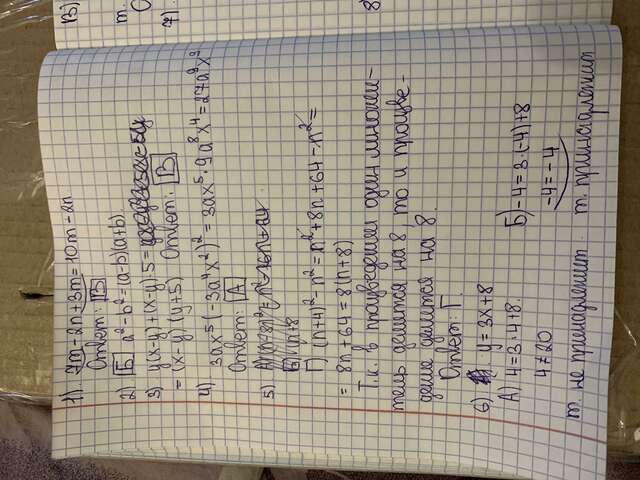 1). 7m-2n+3m=10m-2n
Ответ: В
2) Б a²-b²=(a-b)(a+b)
3) y(x-y)+(x-y)·5=
=(x-y)(y+5) Ответ: В
4) 3ax⁵(-3a⁴x²)²=3ax⁵·9a⁸x⁴=27a⁹x⁹
Ответ: А
5)
n+8
Г) (n+4)²-n²=n²+8n+64-n²=
=8n+64=8(n+8)
Т.к. в произведении один множи-
тель делится на 8, то и произве-
дение делится на 8.
Ответ: Г.
6) y=3x+8
А) 4=3·4+8. Б) -4=3·(-4)+8
4≠20 -4=-4
т. не принадлежит. т. принадлежит
В)
т.
7)
8)